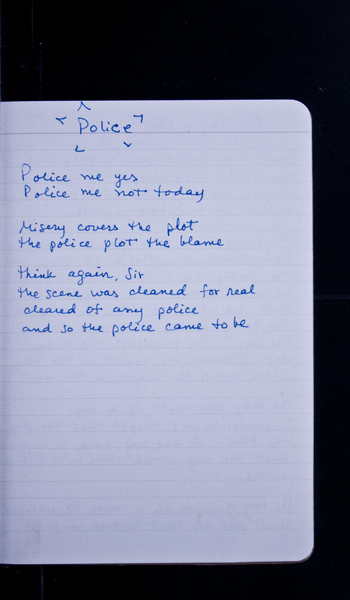 Police
Police me yes
Police me not today
Misery covers the plot
the police plot the blame
think again, Sir
the scene was cleaned for real
cleared of any police
and so the police came to be